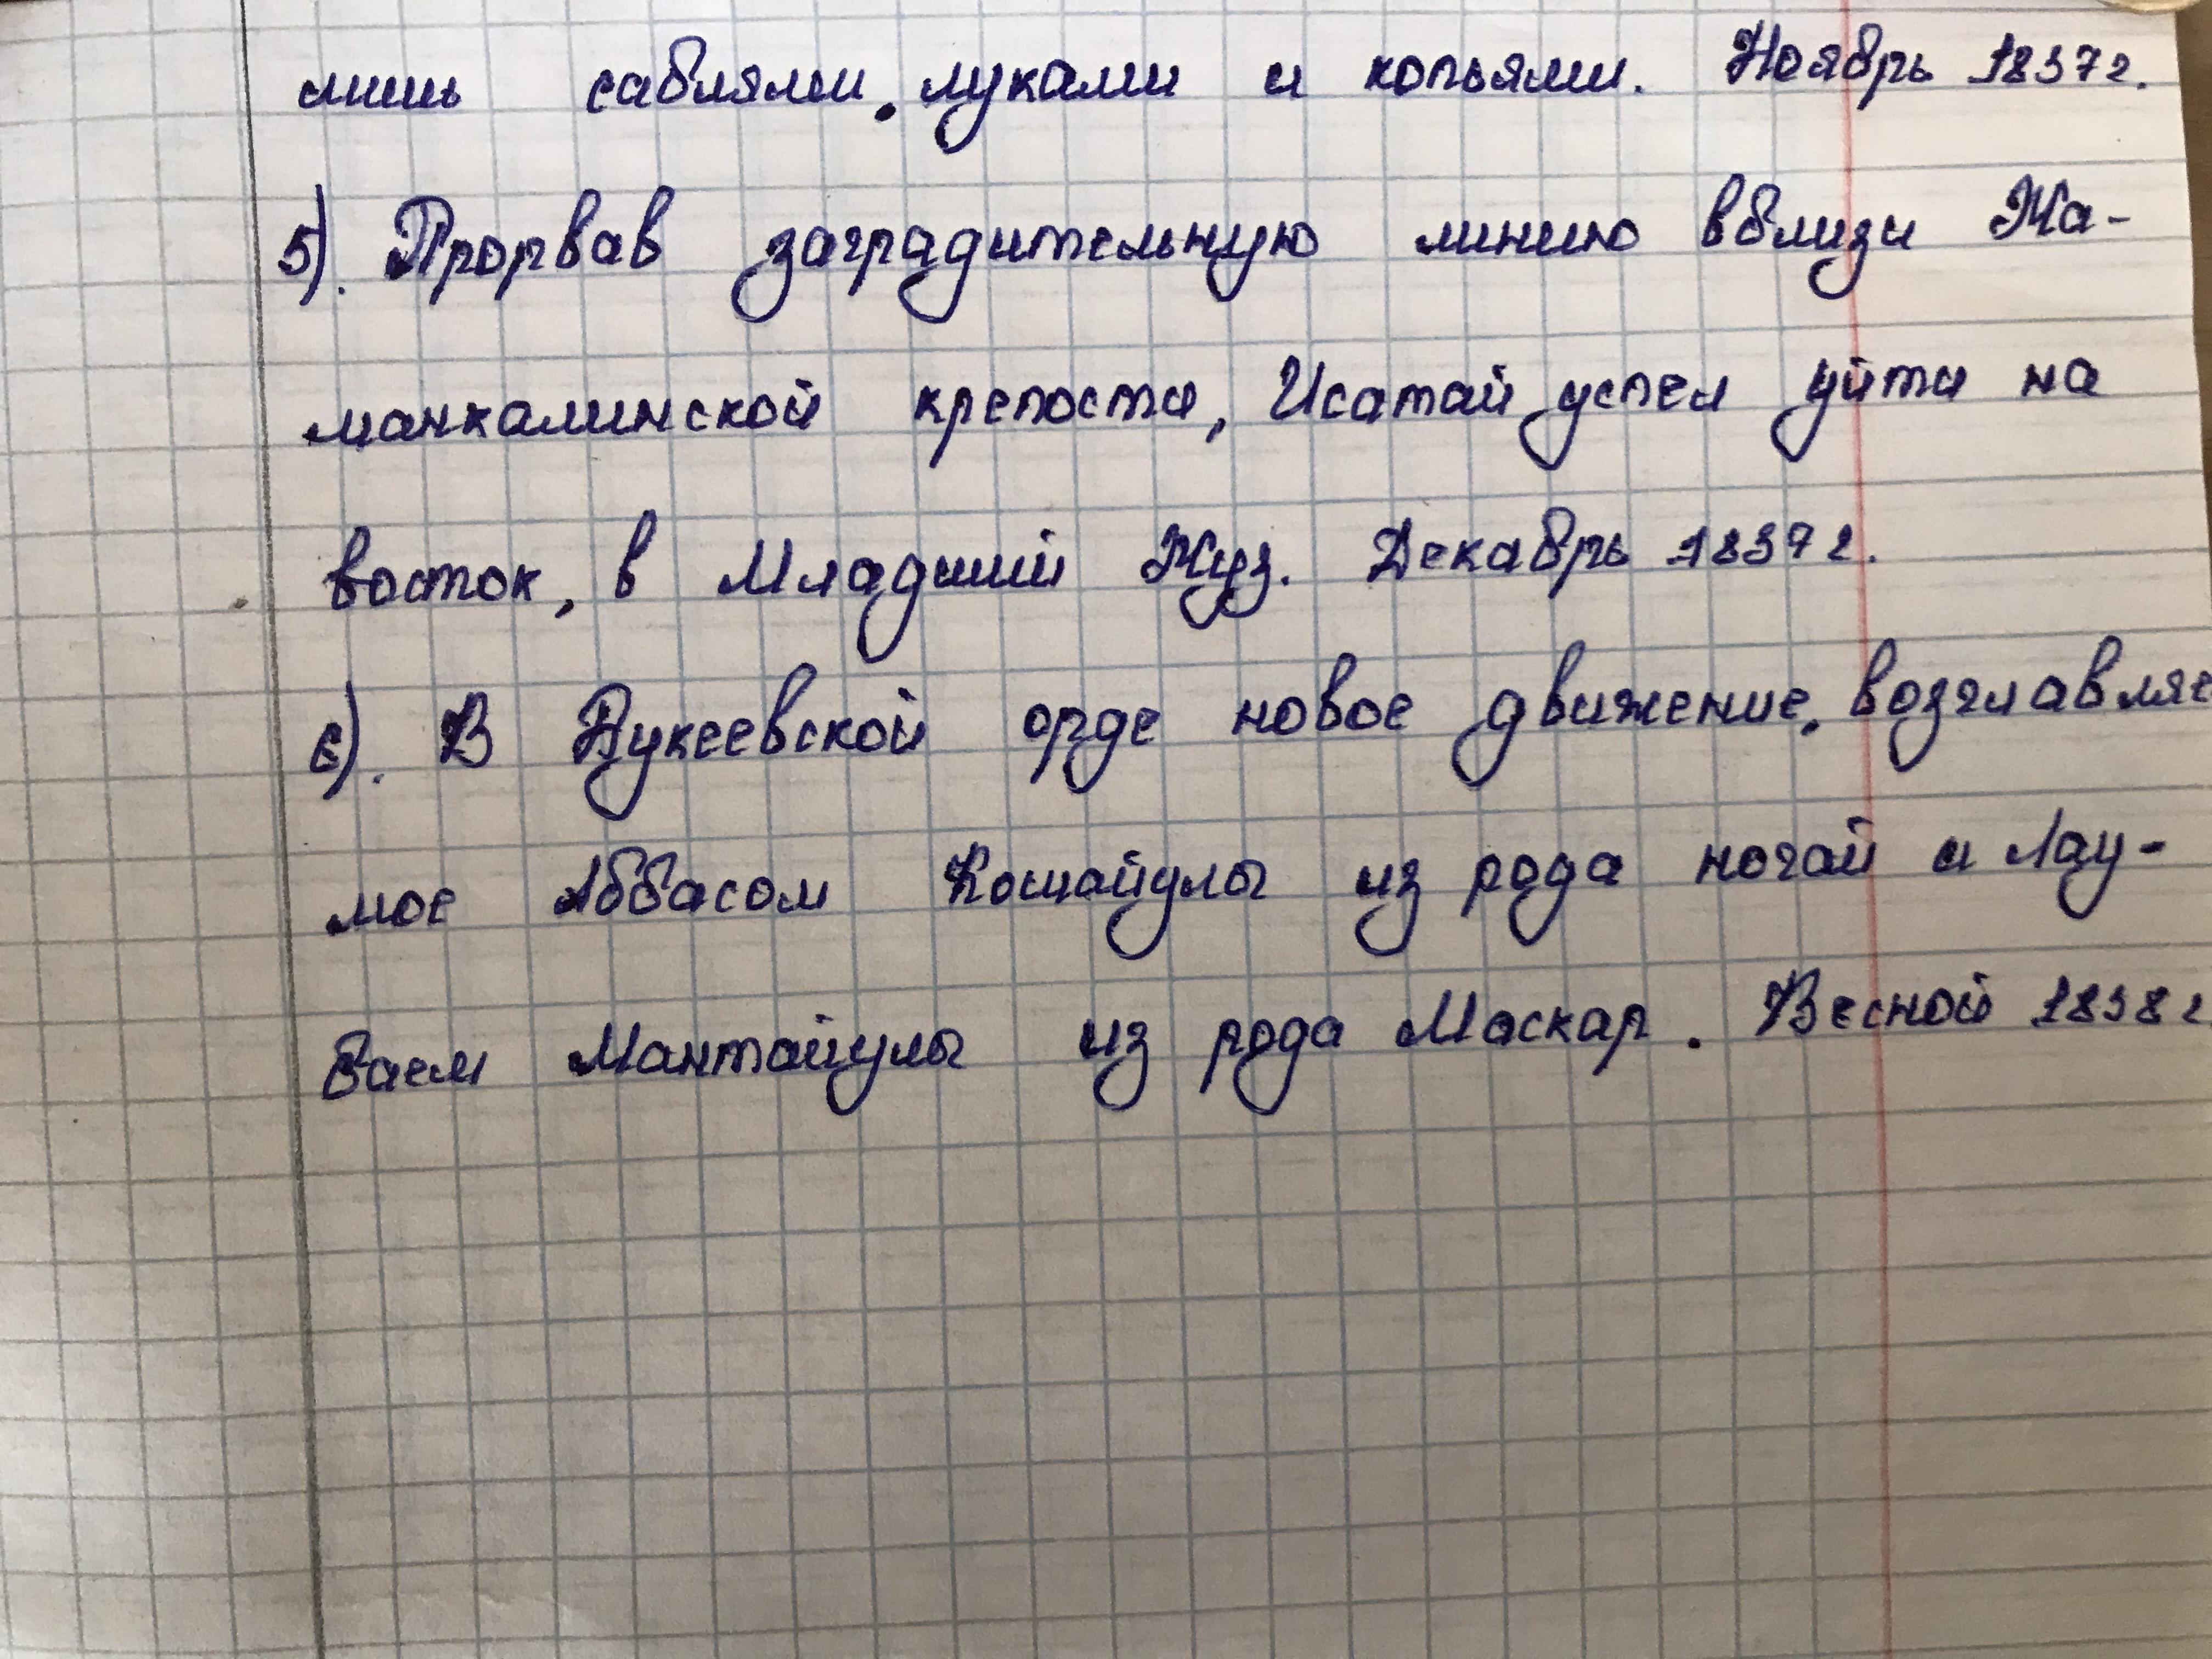 лишь саблями, луками и копьями. Ноябрь 1837г.
5). Прорвав заградительную линию вблизи Жа-
манкалинской крепости, Исатай успел уйти на
восток, в Младший Жуз. Декабрь 1837г.
6). В Букеевской орде новое движение, возглавляе
мое Аббасом Кошайулы из рода ногай и Лау-
баем Мантайулы из рода Маскар. Весной 1838г